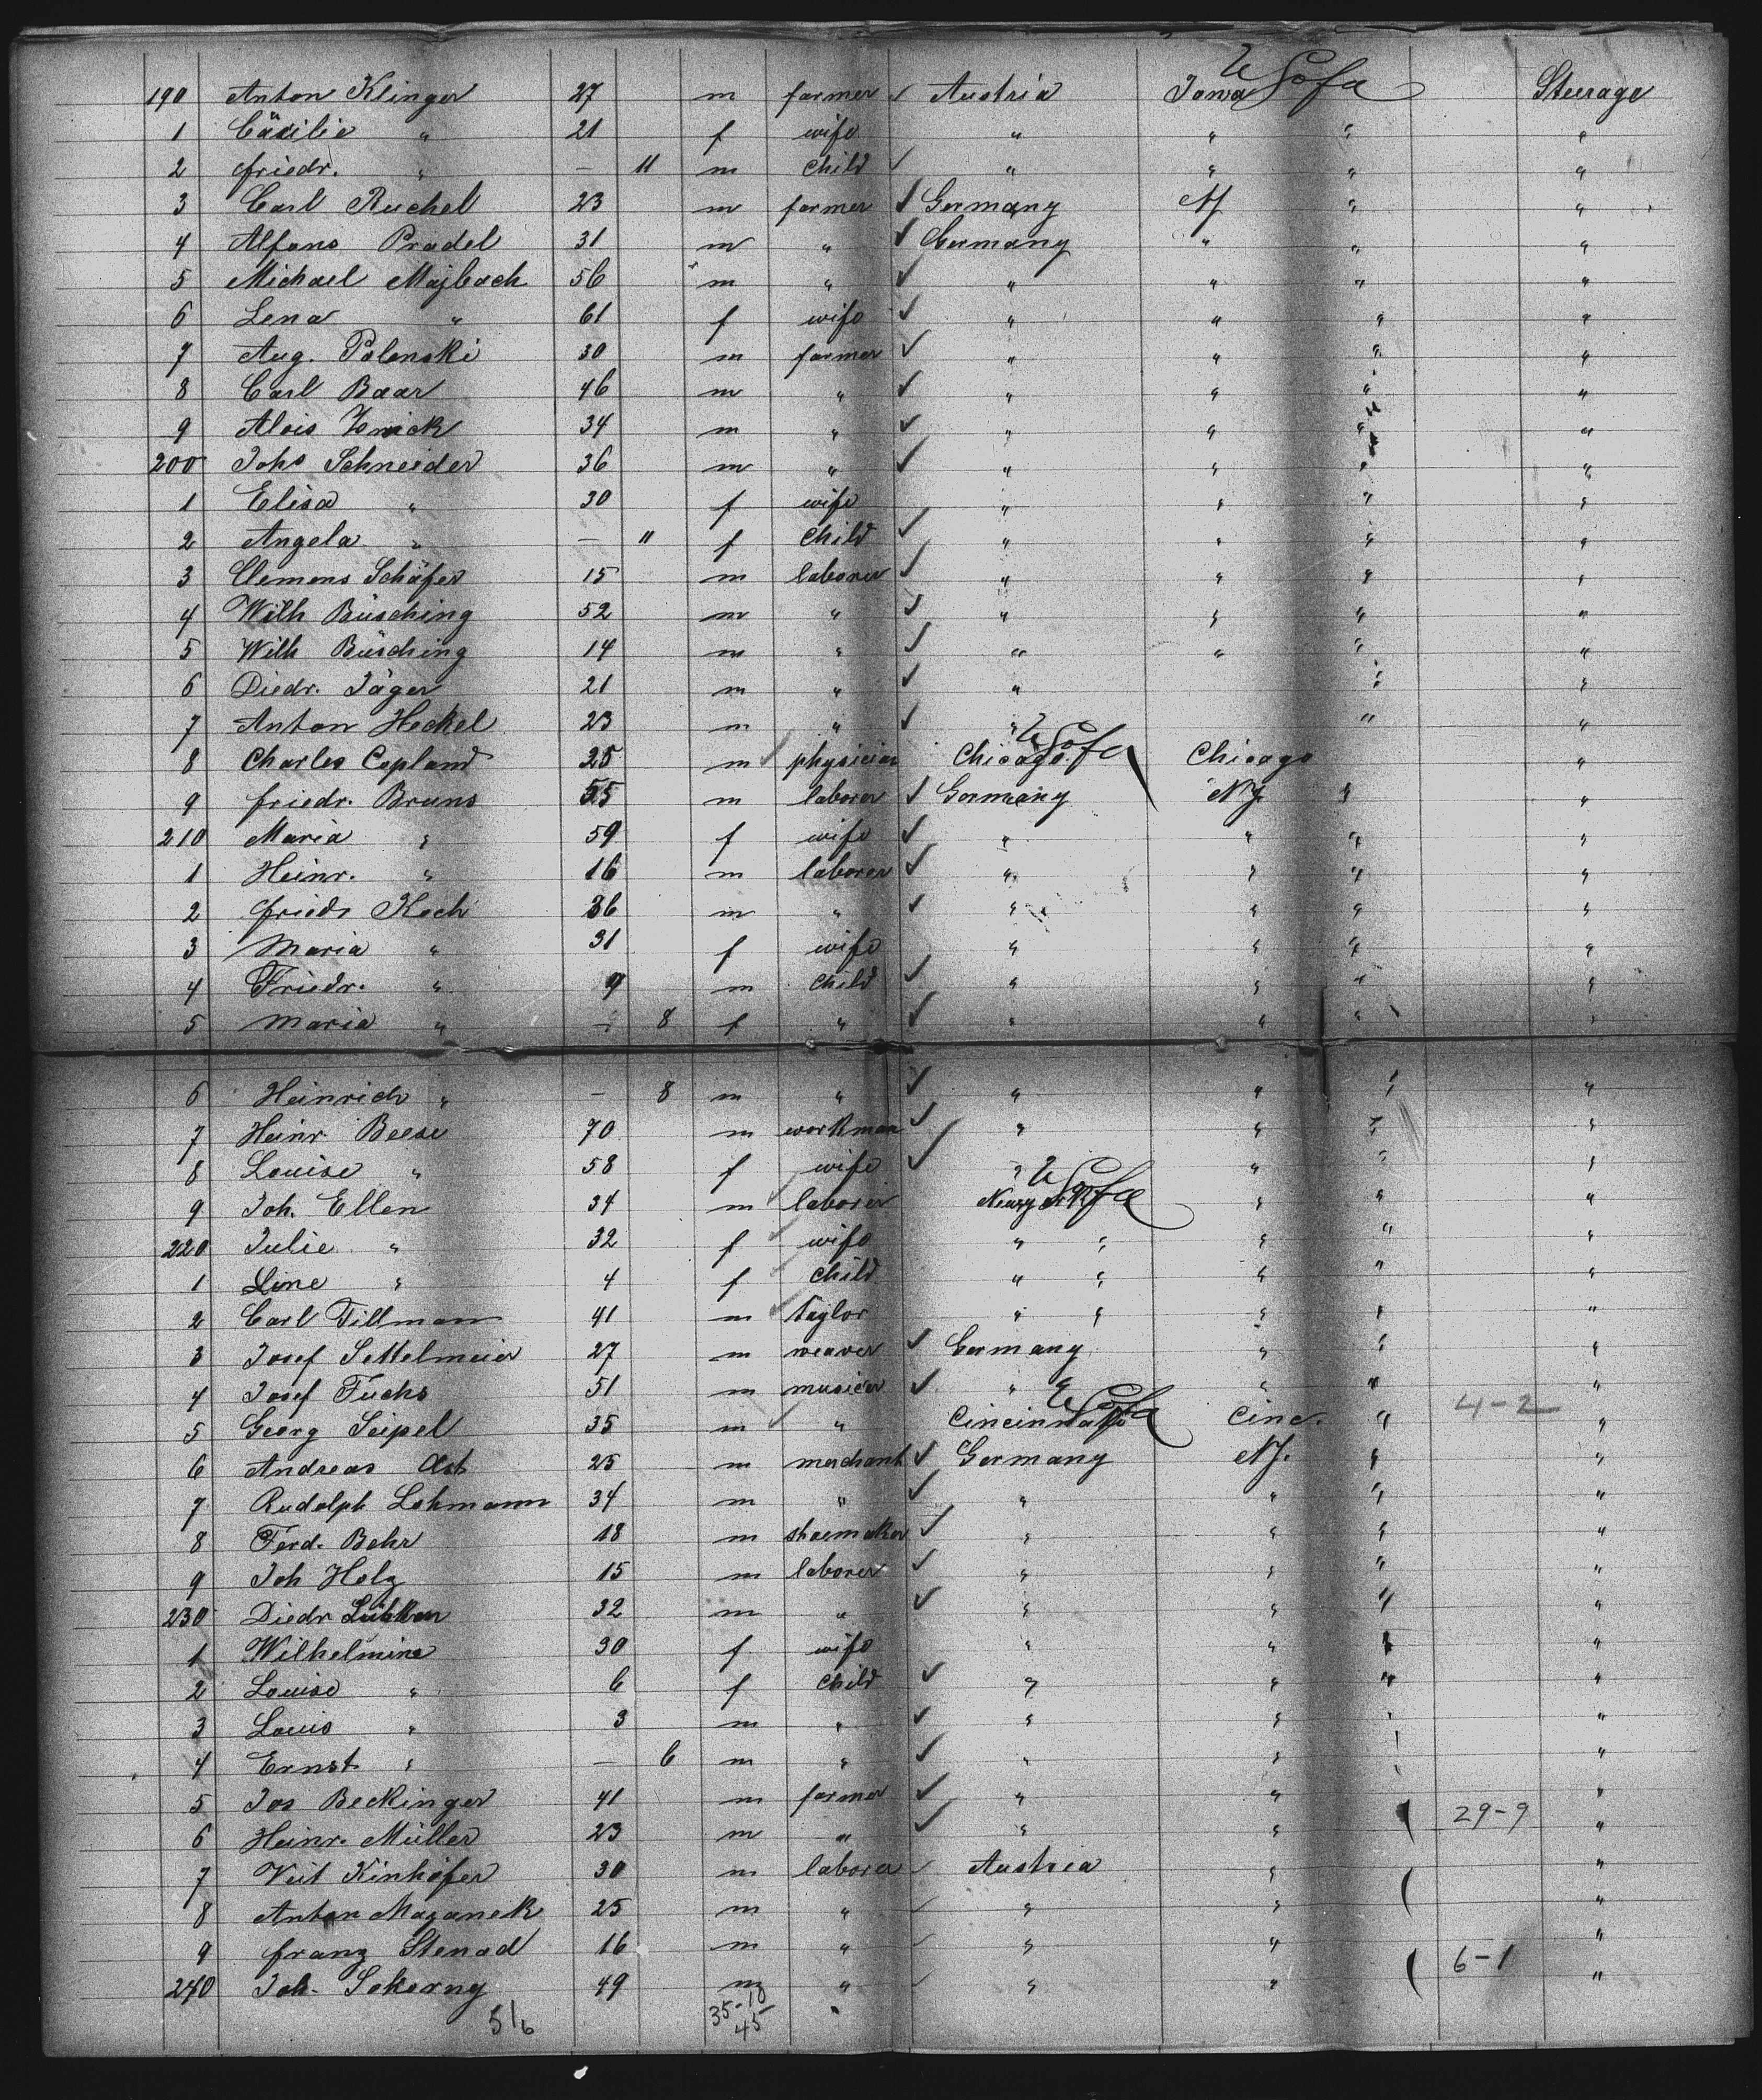 190 Anton Klinger 27 m farmer ✓ Austria Iowa U S of a Steerage
1 Cäcilie " 21 f wife " " " "
2 Friedr. " — 11 m child ✓ " " " "
3 Carl Ruchel 23 m farmer ✓ Germany NY " "
4 Alfons Pradel 31 m " ✓ Germany " " "
5 Michael Majbach 56 m " ✓ " " " "
6 Lena " 61 f wife ✓ " " " "
7 Aug. Polenski 30 m farmer ✓ " " " "
8 Carl Baar 46 m " ✓ " " " "
9 Alois 34 m " ✓ " " " "
200 Johs Schneider 36 m " ✓ " " " "
1 Elisa " 30 f wife " " " "
2 Angela " — 11 f child ✓ " " " "
3 Clemens Schäfer 15 m laborer ✓ " " " "
4 Wilh Büsching 52 m " ✓ " " " "
5 Wilh Büsching 14 m " ✓ " " " "
6 Diedr. Jäger 21 m " ✓ " " "
7 Anton Heckel 23 m " ✓ " " "
8 Charles Copland 25 m ✓ physician Chicago. U S of a Chicago "
9 Friedr. Bruns 55 m laborer ✓ Germany NY " "
210 Maria " 59 f wife ✓ " " " "
1 Heinr. " 16 m laborer ✓ " " " "
2 Friedr Koch 36 m " ✓ " " " "
3 Maria " 31 f wife " " " "
4 Friedr. " 9 m child ✓ " " " "
5 Maria " — 8 f " ✓ " " " "
6 Heinrich " — 8 m " ✓ " " " "
7 Heinr. Beese 70 m workman ✓ " " " "
8 Louise " 58 f wife ✓ " " " "
9 Joh. Ellen 34 m ✓ laborer New york U S of a " " "
220 Julie " 32 f ✓ wife " " " " "
1 Line " 4 f ✓ child " " " " "
2 Carl Tillmann 41 m ✓ taylor " " " " "
3 Josef Settelmeier 27 m weaver ✓ Germany " " "
4 Josef Fuchs 51 m musician ✓ " " " "
5 Georg Seipel 35 m ✓ " Cincinnati U S of a Cinc. " 4-2 "
6 Andreas Ast 25 m merchant ✓ Germany NY. " "
7 Rudolph Lohmann 34 m " ✓ " " " "
8 Ferd. Behr 18 m shoemaker ✓ " " " "
9 Joh Holz 15 m laborer ✓ " " " "
230 Diedr Lühken 32 m " ✓ " " " "
1 Wilhelmine 30 f wife " " " "
2 Louise " 6 f child ✓ " " " "
3 Louis " 3 m " ✓ " " " "
4 Ernst " — 6 m " ✓ " " " "
5 Jos Beckinger 41 m farmer ✓ " " "
6 Heinr. Müller 23 m " ✓ " " ( 29-9 "
7 Veit Kinhöfer 30 m laborer ✓ Austria " "
8 Anton Mazanek 25 m " ✓ " " ( "
9 Franz Stenad 16 m " ✓ " " "
240 Joh. Sokorny 49 m " ✓ " " ( 6-1 "
51/6 35-10
45